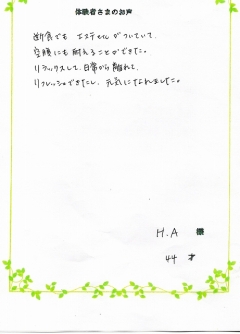 体験者さまのお声
断食でも エステetcがついていて、
空腹にも耐えることができた。
リラックスして、日常から離れて、
リフレッシュできたし、元気になれました。
H.A 様
44 才